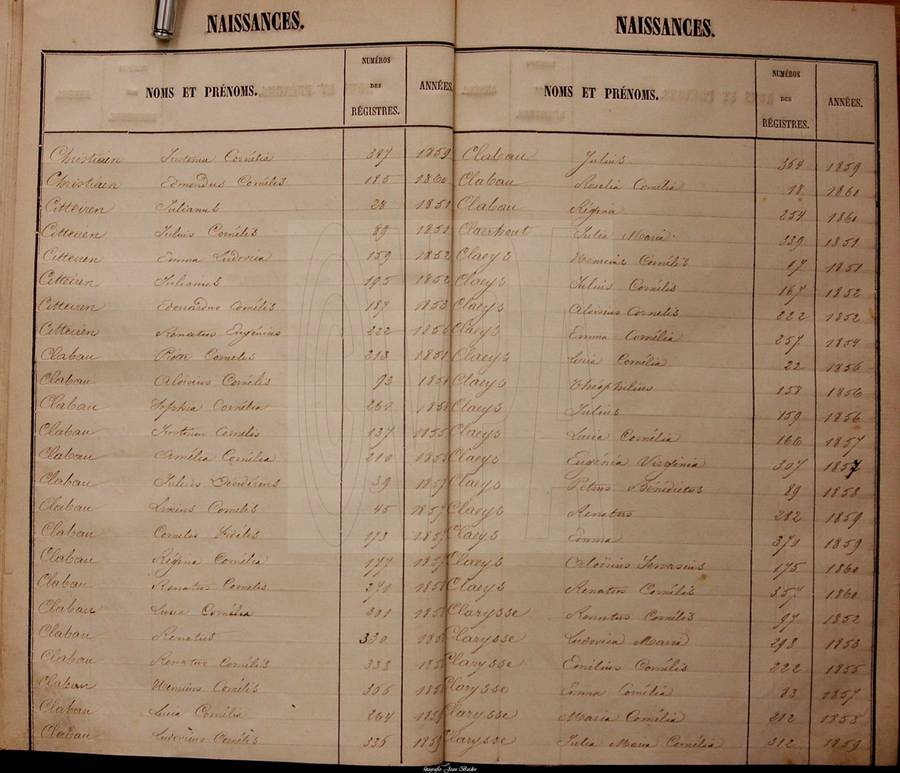 NAISSANCES.
NOMS ET PRÉNOMS. NUMÉROS DES RÉGISTRES. ANNÉES.
Christiaen Cornelia 347 1859
Christiaen Edmondus Cornélis 185 1860
Citteuen Julianus 28 1851
Citteuen Julius Cornélis 89 1851
Citteuen Emma Ludovica 159 1852
Citteuen Julianus 195 1852
Citteuen Edouardus Cornélis 187 1853
Citteuen Renatus Eugénius 222
Clabau Cornelis 213
Clabau Aloïsius Cornélis 93
Clabau Sophia Cornélia 260
Clabau Cornelis 137 1855
Clabau Cornélia 210
Clabau Julius 39
Clabau Cornelis 45 1857
Clabau Cornelis Fidélis 173
Clabau Régina Cornélia 177
Clabau Renatus Cornelis 270
Clabau Lucia Cornélia
Clabau Renatus 330
Clabau Renatus Cornélis 338
Clabau Cornélis 355
Clabau Lucia Cornélia 264
Clabau Ludovicus Cornélis 336
NAISSANCES.
NOMS ET PRÉNOMS. NUMÉROS DES RÉGISTRES. ANNÉES.
Clabau Julius 364 1859
Clabau Rosalia Cornélia 18 1860
Clabau Régina 254 1860
Claerhout Julia Maria 339 1851
Claeys Cornélis 17 1851
Claeys Julius Cornélis 167 1852
Claeys Aloïsius Cornelis 222 1852
Claeys Emma Cornélia 257 1854
Claeys Lucia Cornélia 22 1856
Claeys Théophilius 158 1856
Claeys Julius 159 1856
Claeys Lucia Cornélia 166 1857
Claeys Eugénia Virginia 307 1857
Claeys Petrus Bénédictus 89 1858
Claeys Renatus 282 1859
Claeys Emma 370 1859
Claeys Servasius 175 1860
Claeys Renatus Cornélis 357 1860
Clarysse Renatus Cornélis 97 1852
Clarysse Ludovica Maria 298 1853
Clarysse Emilius Cornélis 222 1855
Clarysse Emma Cornélia 83 1857
Clarysse Maria Cornélia 212 1858
Clarysse Julia Maria Cornélia 312 1859